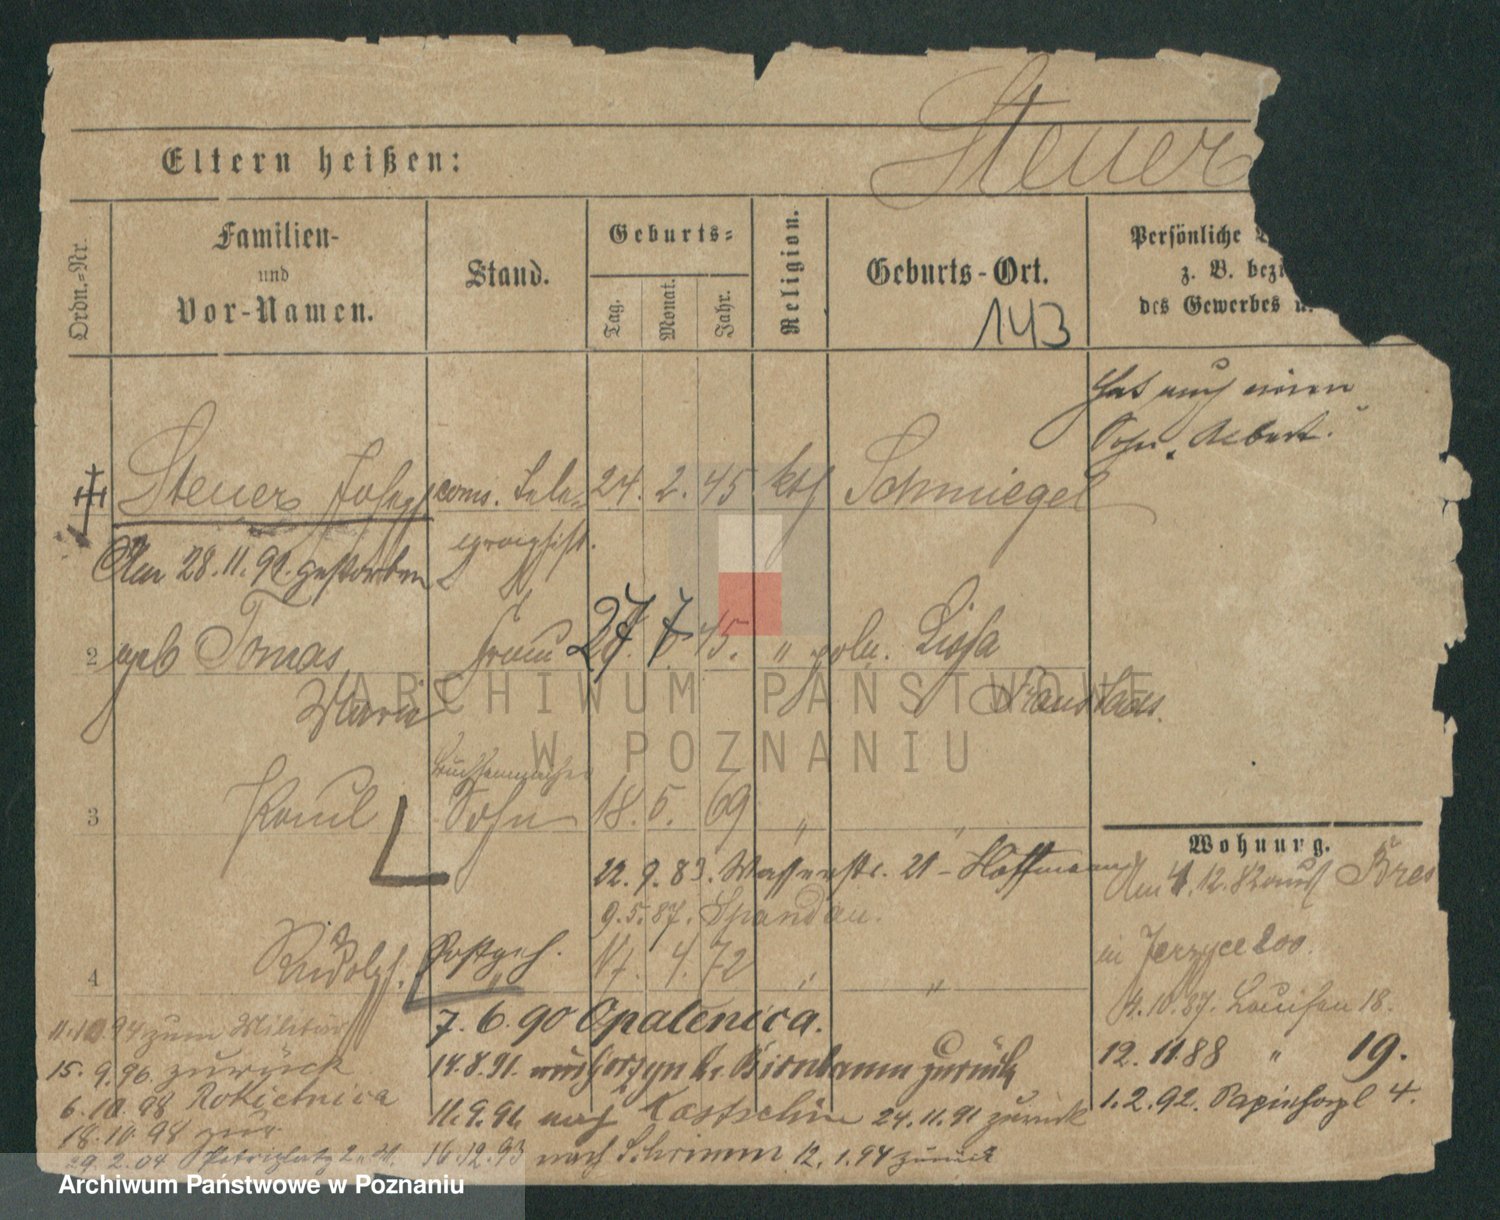 Steuer
Eltern heißen:
Ordn.-Nr.
Familien-
und
Vor-Namen.
Stand.
Geburts-
Tag.
Monat.
Jahr.
Religion.
Geburts-Ort.
143
Persönliche
z. B. bezi
des Gewerbes u.
Hat auch einen
Sohn Albert.
Steuer Joseph
Tele-
24. 2. 45
kth
Schmiegel
graphist.
Am 28.11.91 gestorben
2
geb Tomas
Frau
27. 7. 45.
"
poln. Lissa
Maria
Fraustadt.
3
Paul
Sohn
18. 5. 69
"
"
Wohnung.
22. 9. 83. Wasserstr. 21 - Hoffmann
Am 4.12.82 aus Bres
9.5.87. Spandau.
4
Rudolph.
Postgeh.
17. 4. 72
"
"
in Jerzyce 200.
4.10.87. Louisen 18.
11.10.94 zum Militär
7. 6. 90 Opalenica.
12. 11 88 " 19.
15. 9. 96. zurück
14.8.91. Birnbaum zurück
6.10.98 Rokietnica
11.9.91. nach Kostschin 24.11.91 zurück
1.2.92. 4.
18.10.98 zur.
16.12.93 nach Schrimm 12. 1.94 zurück
29.2.04 Petriplatz 2.
ARCHIWUM PAŃSTWOWE
W POZNANIU
Archiwum Państwowe w Poznaniu